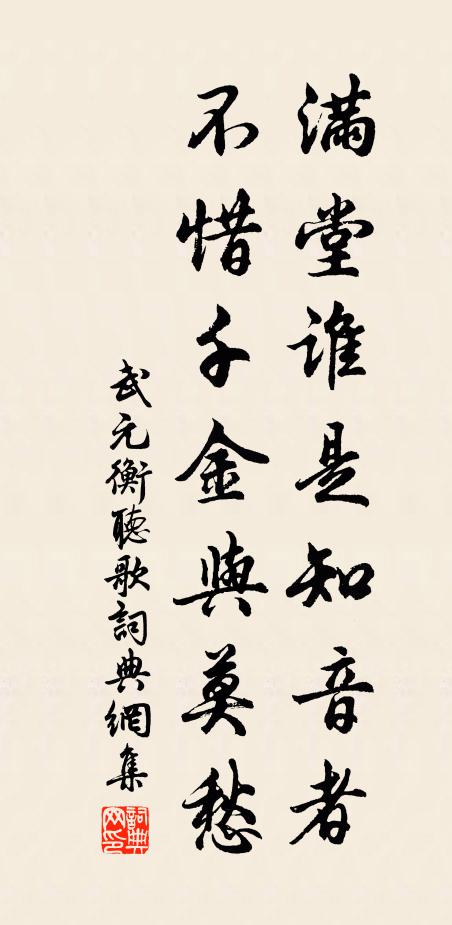 滿堂誰是知音者
不惜千金與莫愁
武元衡聽歌詞典網集
詞典
网印